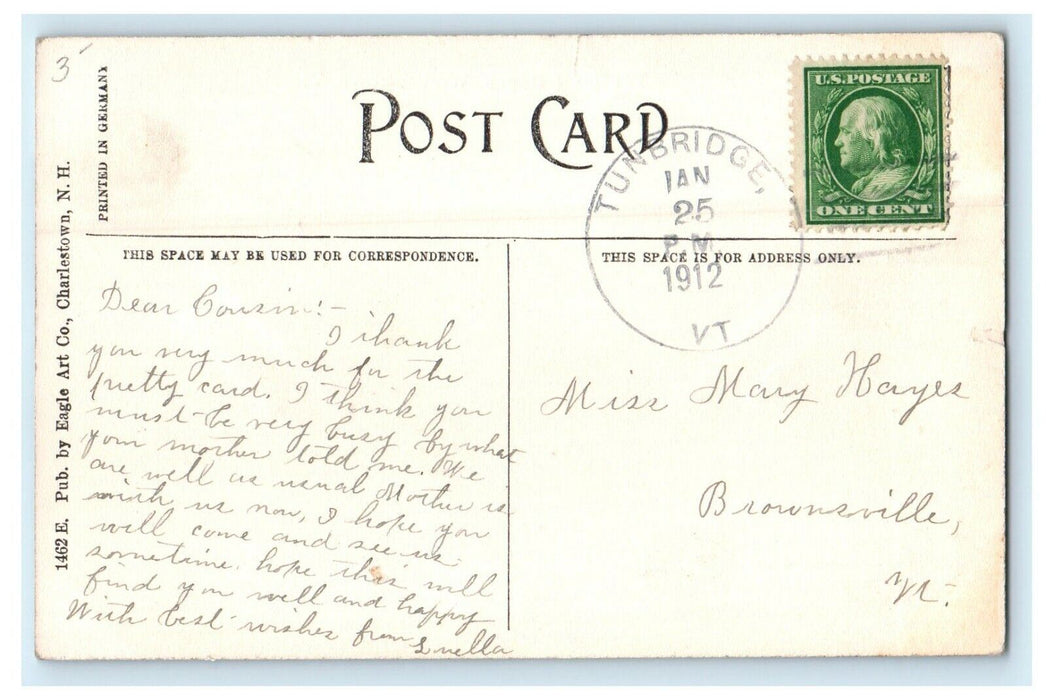 3
PRINTED IN GERMANY
1462 E. Pub. by Eagle Art Co., Charlestown, N. H.
POST CARD
U.S. POSTAGE
ONE CENT
TUNBRIDGE,
JAN
25
P.M.
1912
VT
THIS SPACE MAY BE USED FOR CORRESPONDENCE.
THIS SPACE IS FOR ADDRESS ONLY.
Dear Cousin:-
I thank
you very much for the
pretty card. I think you
must be very busy by what
your mother told me. We
are well as usual Mother is
with us now, I hope you
will come and see us
sometime. hope this will
find you well and happy
With best wishes from
Luella
Miss Mary Hayes
Brownsville,
Vt.